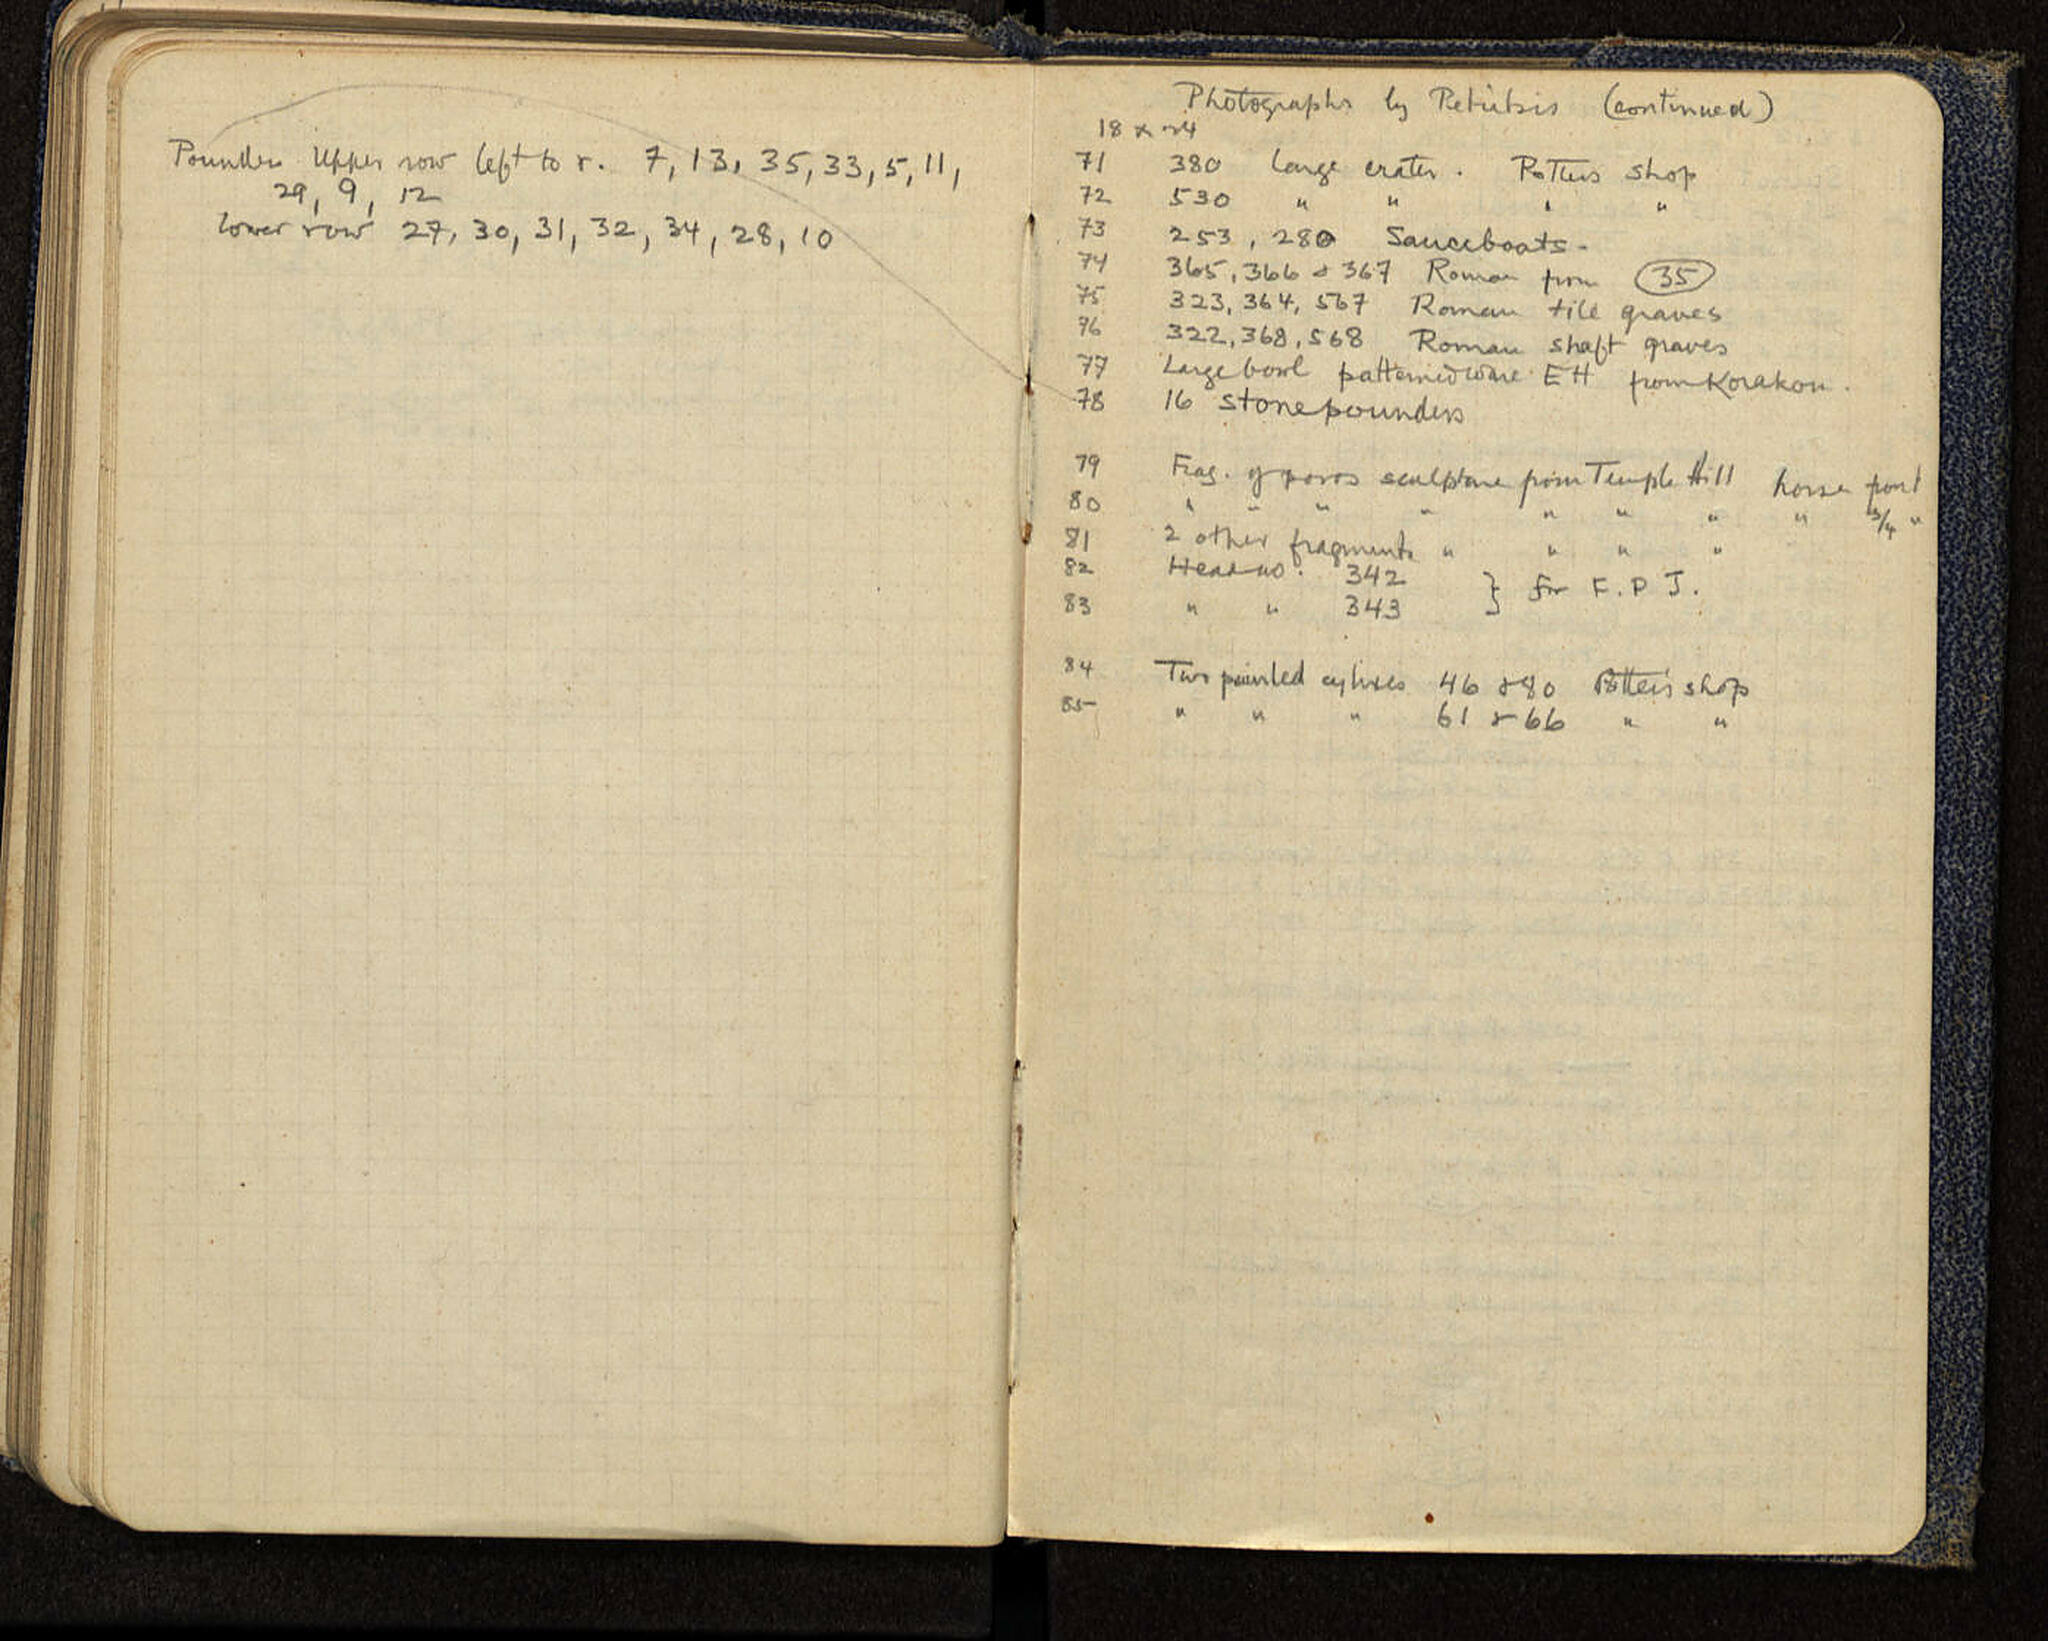 Pounders Upper row left to r. 7, 13, 35, 33, 5, 11,
29, 9, 12
Lower row 27, 30, 31, 32, 34, 28, 10
Photographs by Petritsis (continued)
18 x 24
71 380 Large crater. Potters shop
72 530 " " " "
73 253, 280 Sauceboats.
74 365, 366 & 367 Roman from 35
75 323, 364, 567 Roman tile graves
76 322, 368, 568 Roman shaft graves
77 Large bowl patterned ware EH from Korakou.
78 16 stone pounders
79 Frag. of poros sculpture from Temple Hill horse front
80 " " " " " " " " 3/4 "
81 2 other fragments " " " "
82 Head no. 342 } for F. P J.
83 " " 343
84 Two painted cylixes 46 & 80 Potter's shop
85 " " " 61 & 66 " "